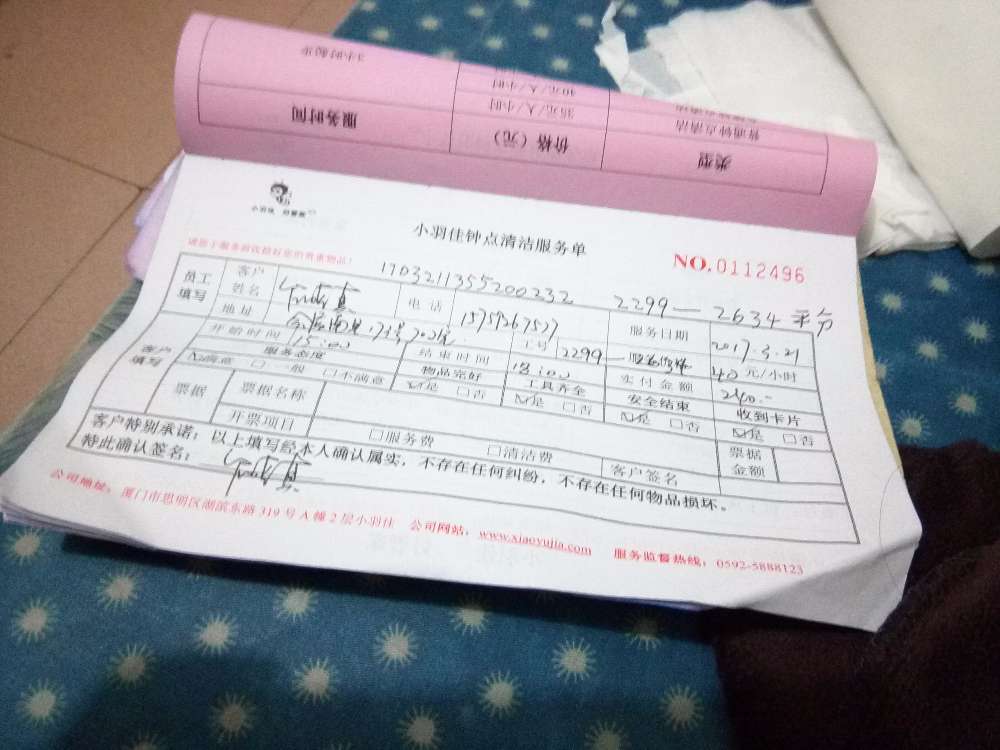 类型 价格（元） 服务时间
普通钟点清洁 35元/人/小时
40元/人/小时 3小时起步
小羽佳 好管家
小羽佳钟点清洁服务单
NO.0112496
1703211355200232 2299—2634
员工填写 客户姓名 电话 15759267527 服务日期 2017.3.21
地址 工号 2299— 40元/小时
客户填写 开始时间 15:00 结束时间 18:00 实付金额 240.-
服务态度 物品完好 工具齐全 安全结束 收到卡片
☑满意 □一般 □不满意 ☑是 □否 ☑是 □否 ☑是 □否 ☑是 □否
票据 票据名称 票据金额
开票项目 □服务费 □清洁费 客户签名
客户特别承诺：以上填写经本人确认属实，不存在任何纠纷，不存在任何物品损坏。
特此确认签名：
公司地址：厦门市思明区湖滨东路319号A幢2层小羽佳 公司网站：www.xiaoyujia.com 服务监督热线：0592-5888123